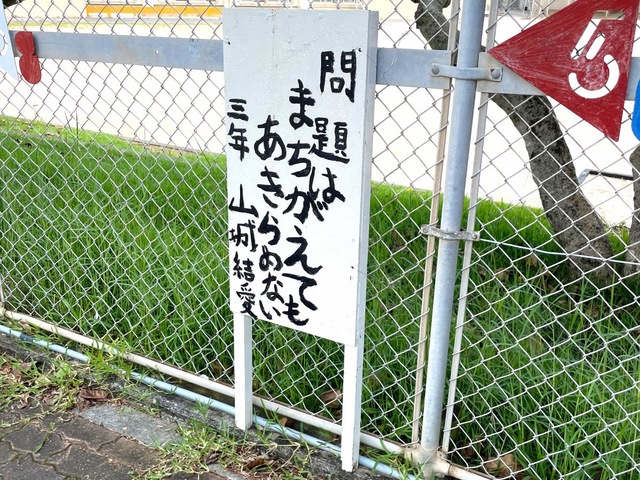 問題は
まちがえても
あきらめない
三年 山城結愛